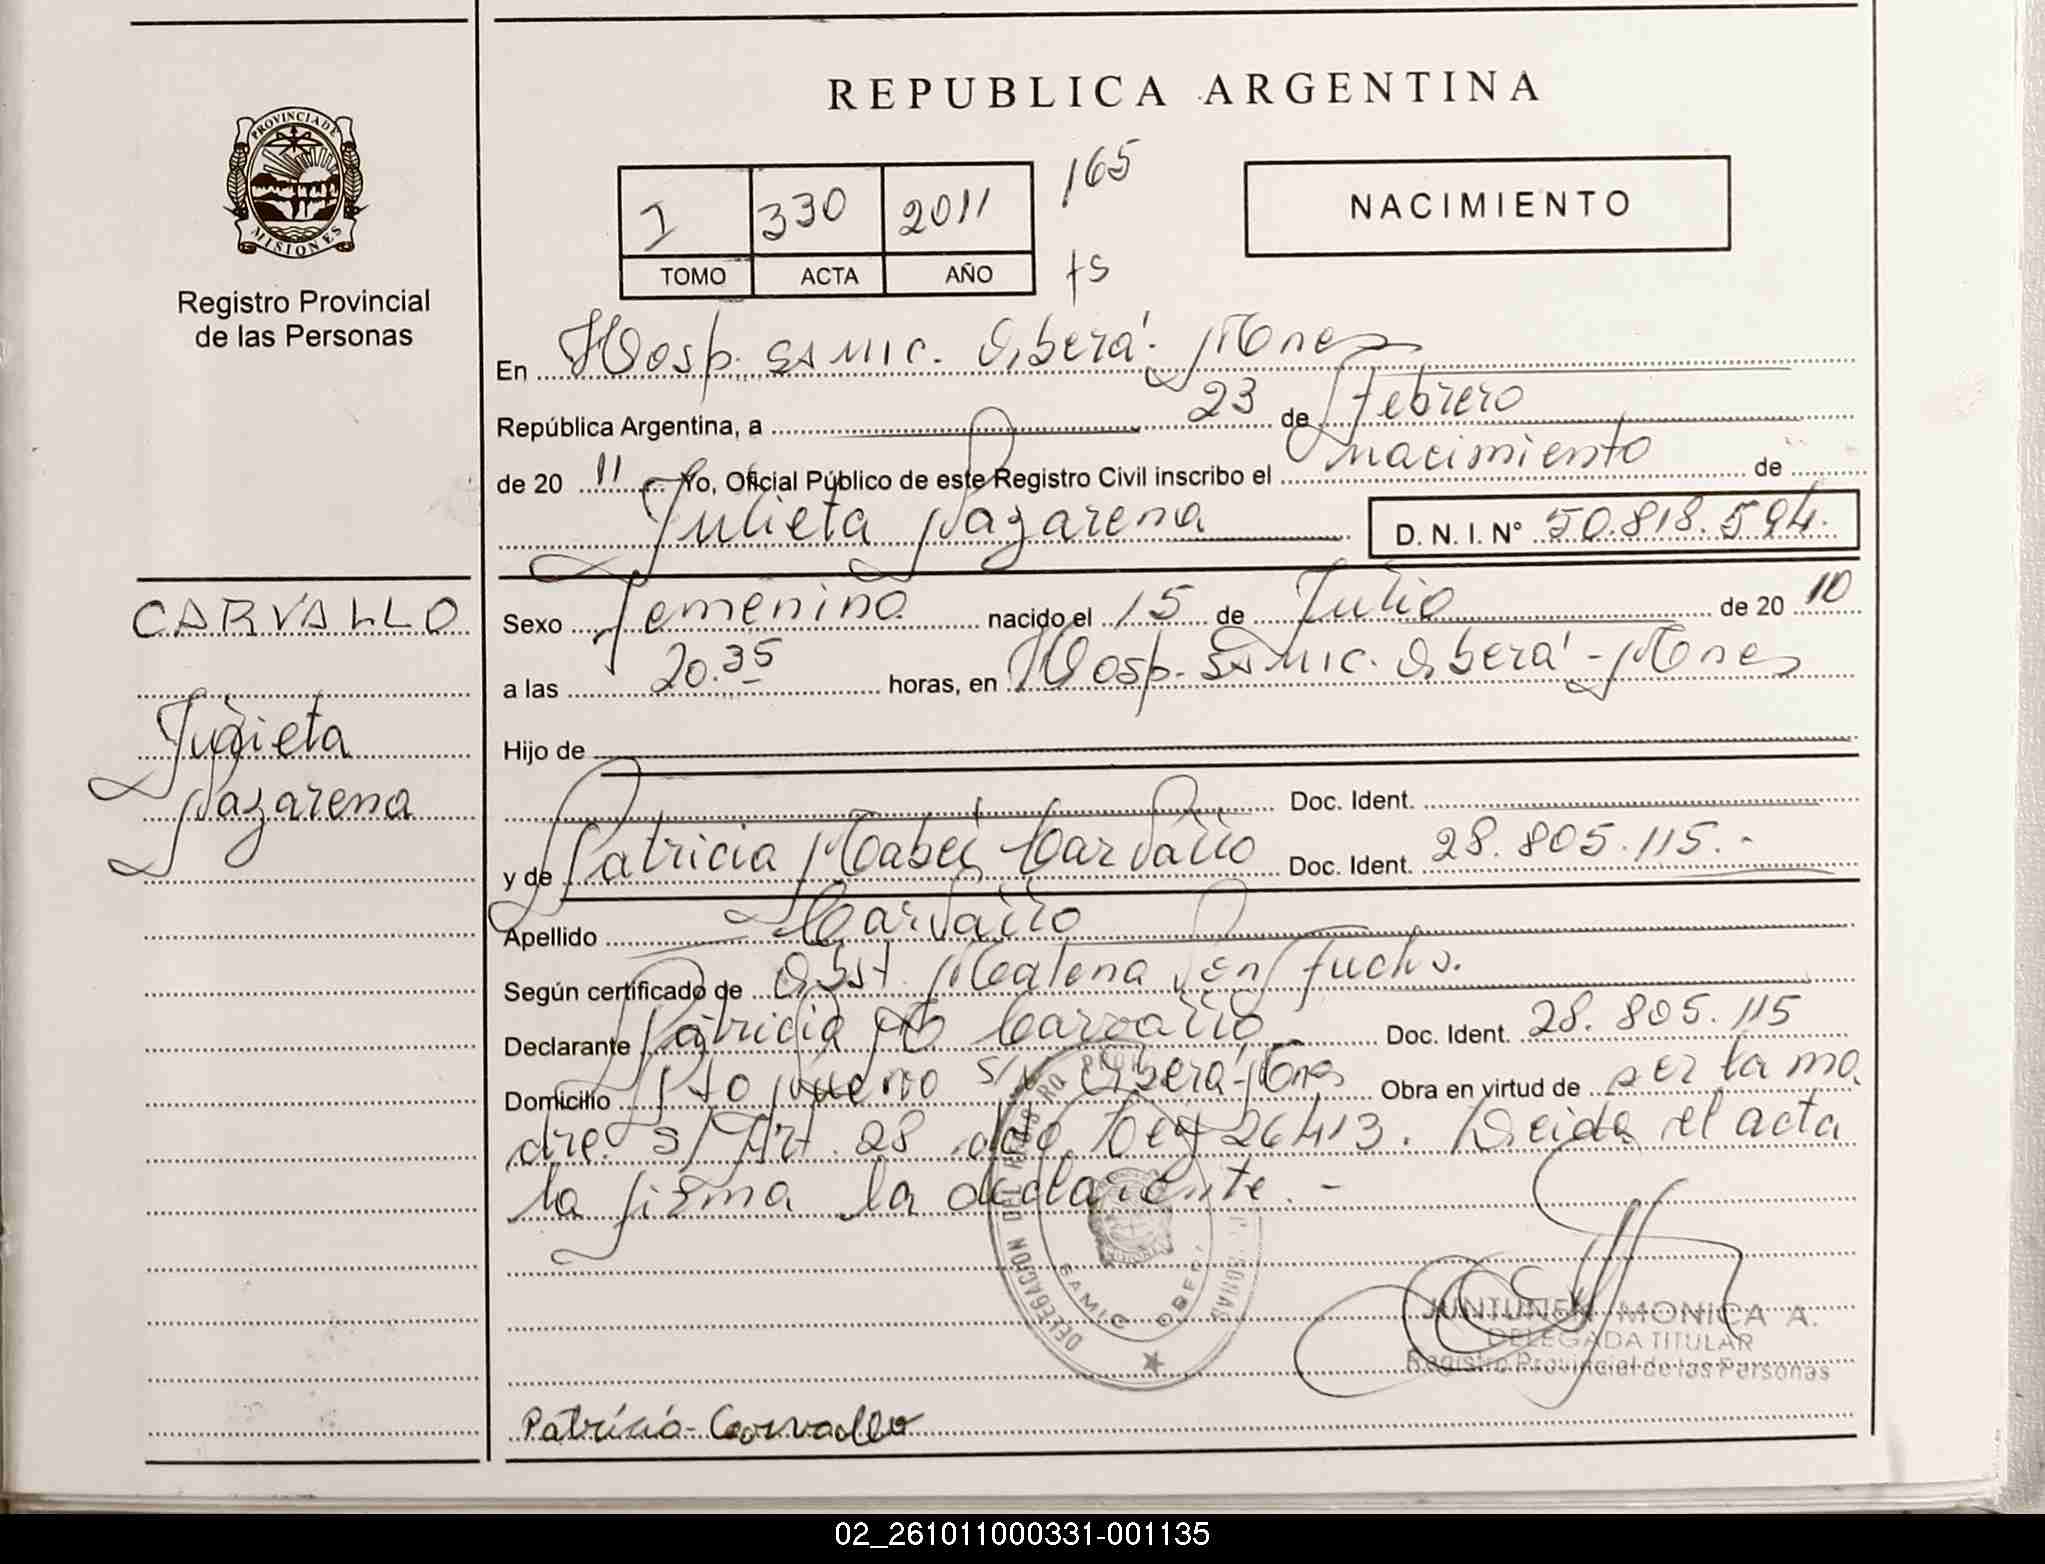 REPUBLICA ARGENTINA
PROVINCIA DE
MISIONES
Registro Provincial
de las Personas
I 330 2011 165
TOMO ACTA AÑO fs
NACIMIENTO
En Hosp. SAMIC. Oberá. Mnes
República Argentina, a 23 de Febrero
de 20 11 Yo, Oficial Público de este Registro Civil inscribo el nacimiento de
Julieta Nazarena D. N. I. N° 50.818.594.
CARVALLO
Julieta
Nazarena
Sexo Femenino nacido el 15 de Julio de 20 10
a las 20.35 horas, en Hosp. SAMIC. Oberá - Mnes
Hijo de
Doc. Ident.
y de Patricia Mabel Carvallo Doc. Ident. 28.805.115.-
Apellido Carvallo
Según certificado de Obst. Malena Fuchs.
Declarante Patricia M Carvallo Doc. Ident. 28.805.115
Domicilio Pto s/n Oberá-Mnes Obra en virtud de ser la ma
dre. s/ Art. 28 de Ley 26413. Leida el acta
la firma la declarante.-
DELEGACION DEL REGISTRO
SAMIC
JUNTUNEN MONICA A.
DELEGADA TITULAR
Registro Provincial de las Personas
Patricia Carvallo
02_261011000331-001135